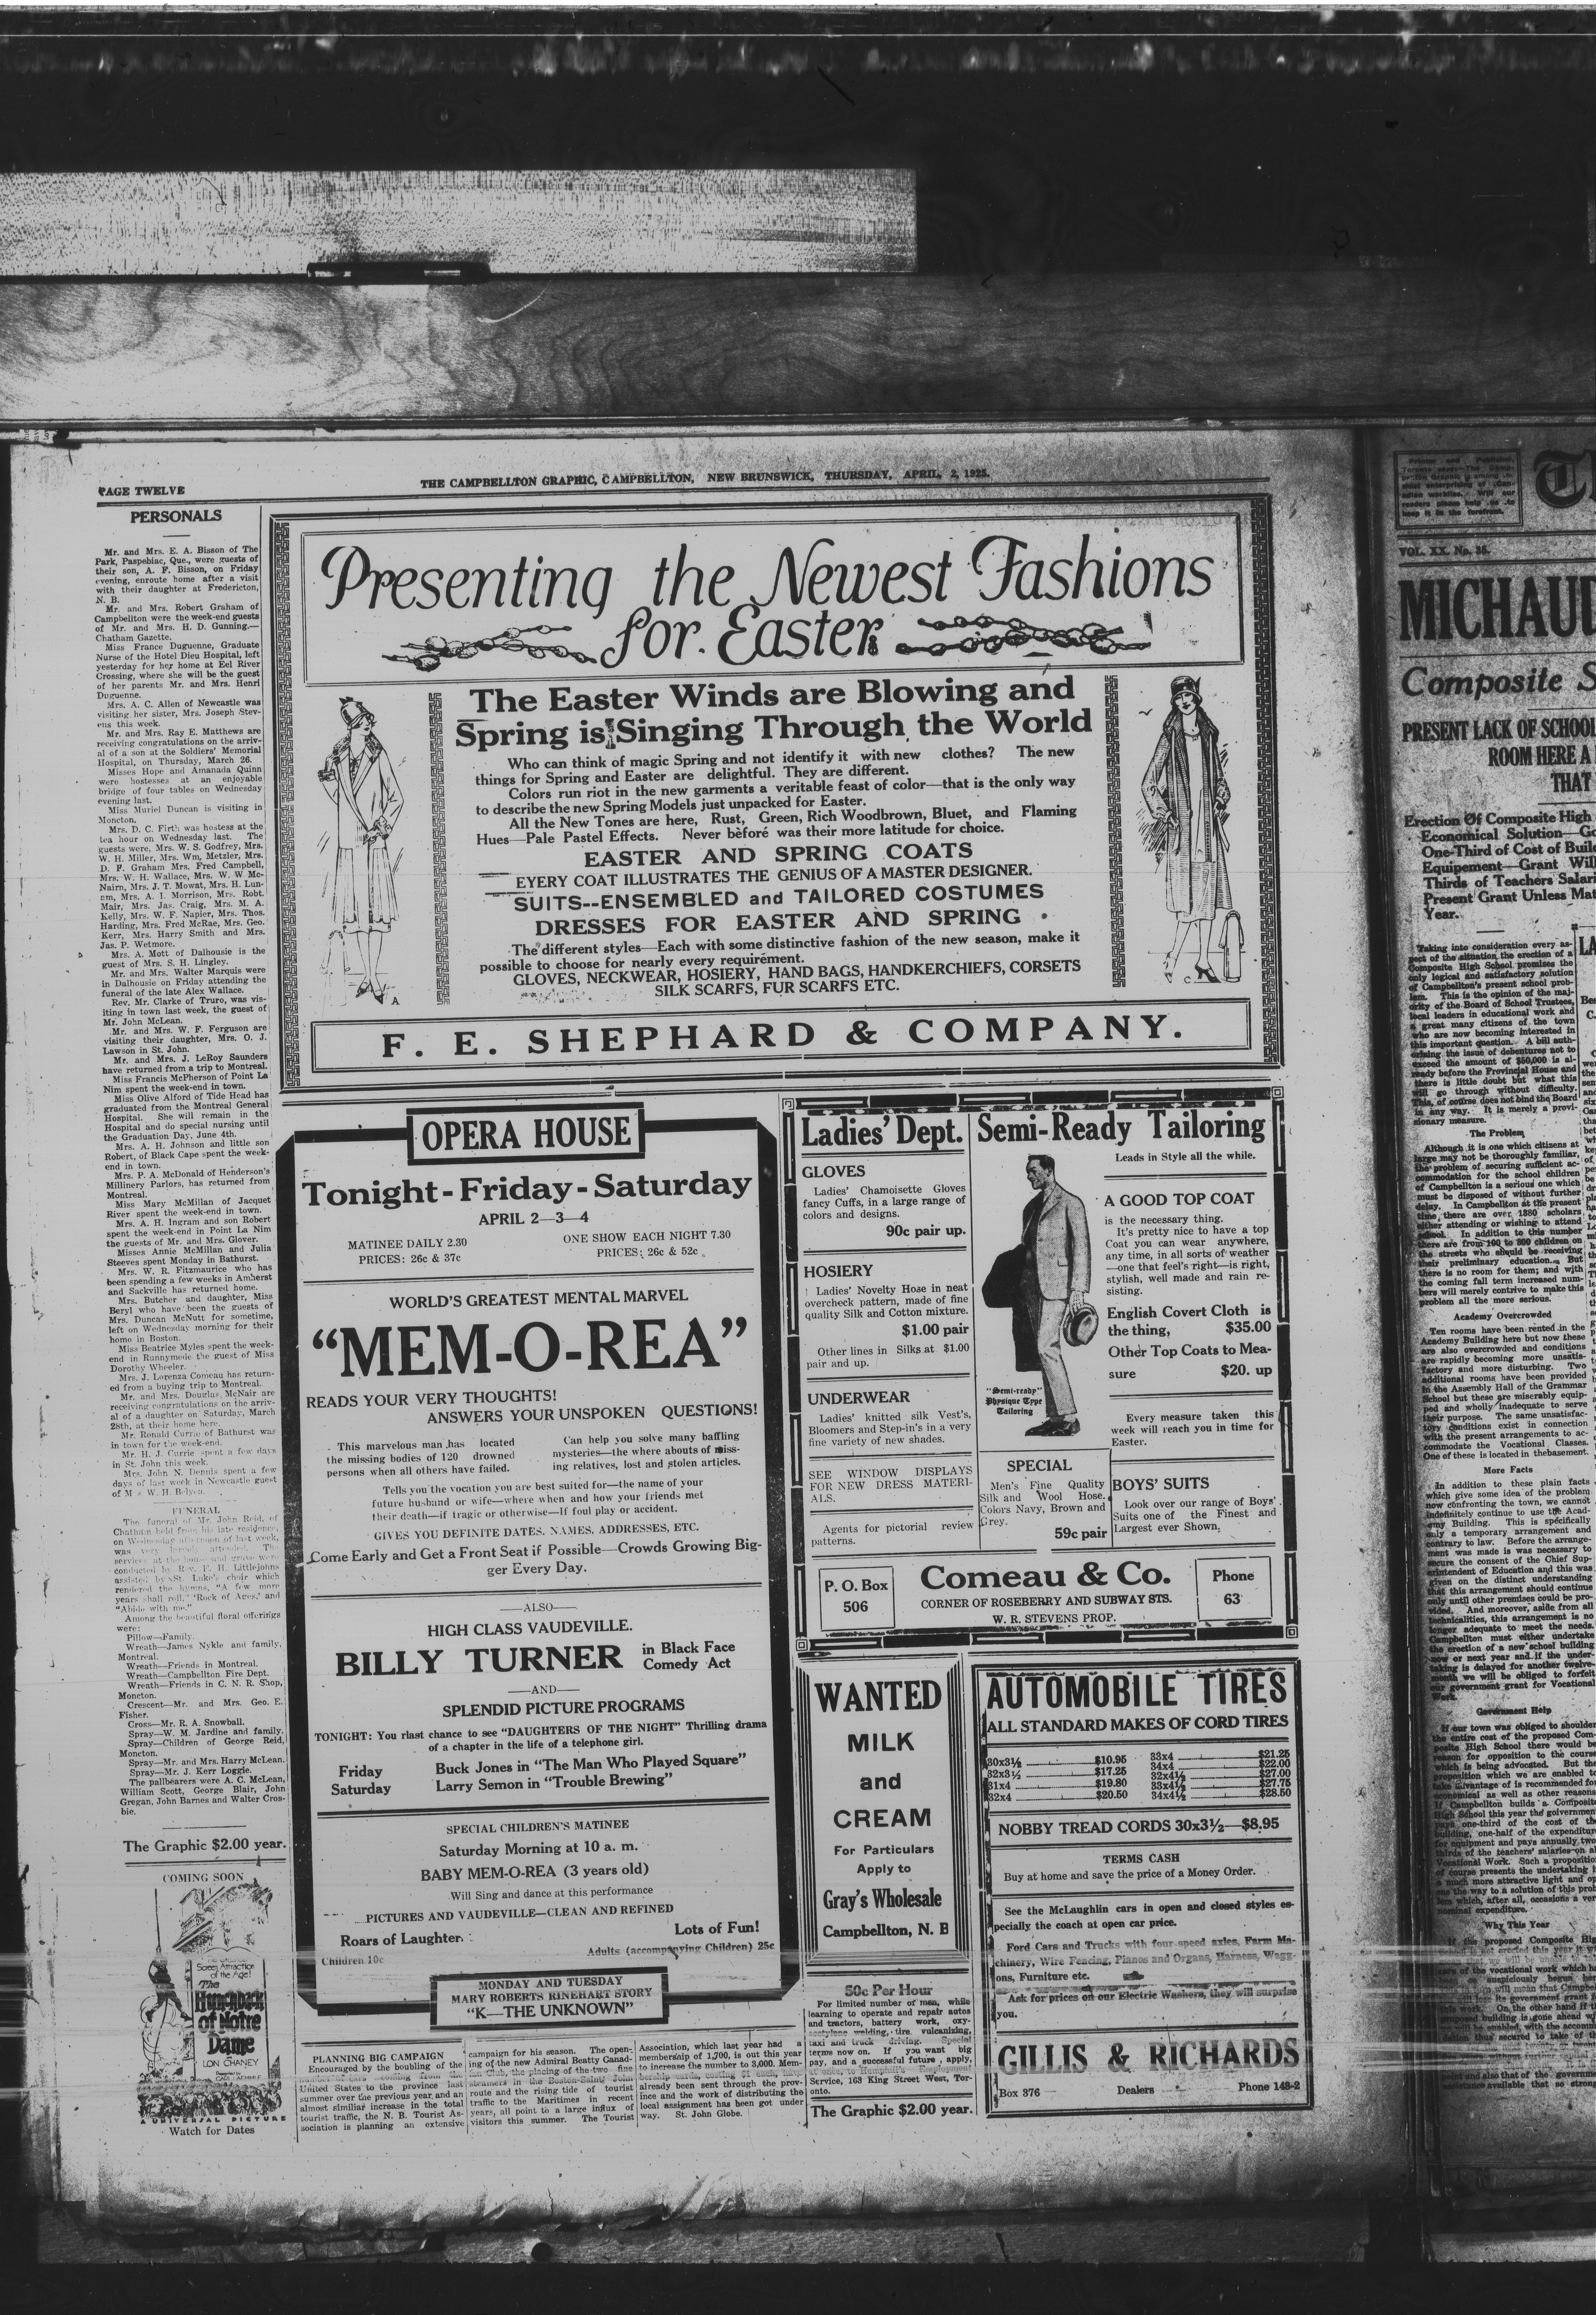 PAGE TWELVE
THE CAMPBELLTON GRAPHIC, CAMPBELLTON, NEW BRUNSWICK, THURSDAY, APRIL 2, 1925.
PERSONALS
Mr. and Mrs. E. A. Bisson of The
Park, Paspebiac, Que., were guests of
their son, A. F. Bisson, on Friday
evening, enroute home after a visit
with their daughter at Fredericton,
N. B.
Mr. and Mrs. Robert Graham of
Campbellton were the week-end guests
of Mr. and Mrs. H. D. Gunning.—
Chatham Gazette.
Miss France Duguenne, Graduate
Nurse of the Hotel Dieu Hospital, left
yesterday for her home at Eel River
Crossing, where she will be the guest
of her parents Mr. and Mrs. Henri
Duguenne.
Mrs. A. C. Allen of Newcastle was
visiting her sister, Mrs. Joseph Stev-
ens this week.
Mr. and Mrs. Ray E. Matthews are
receiving congratulations on the arriv-
al of a son at the Soldiers' Memorial
Hospital, on Thursday, March 26.
Misses Hope and Amanada Quinn
were hostesses at an enjoyable
bridge of four tables on Wednesday
evening last.
Miss Muriel Duncan is visiting in
Moncton.
Mrs. D. C. Firth was hostess at the
tea hour on Wednesday last. The
guests were, Mrs. W. S. Godfrey, Mrs.
W. H. Miller, Mrs. Wm, Metzler, Mrs.
D. F. Graham Mrs. Fred Campbell,
Mrs. W. H. Wallace, Mrs. W. W Mc-
Nairn, Mrs. J. T. Mowat, Mrs. H. Lun-
nm, Mrs. A. I. Morrison, Mrs. Robt.
Mair, Mrs. Jas. Craig, Mrs. M. A.
Kelly, Mrs. W. F. Napier, Mrs. Thos.
Harding, Mrs. Fred McRae, Mrs. Geo.
Kerr, Mrs. Harry Smith and Mrs.
Jas. P. Wetmore.
Mrs. A. Mott of Dalhousie is the
guest of Mrs. S. H. Lingley.
Mr. and Mrs. Walter Marquis were
in Dalhousie on Friday attending the
funeral of the late Alex Wallace.
Rev. Mr. Clarke of Truro, was vis-
iting in town last week, the guest of
Mr. John McLean.
Mr. and Mrs. W. F. Ferguson are
visiting their daughter, Mrs. O. J.
Lawson in St. John.
Mr. and Mrs. J. LeRoy Saunders
have returned from a trip to Montreal.
Miss Francis McPherson of Point La
Nim spent the week-end in town.
Miss Olive Alford of Tide Head has
graduated from the Montreal General
Hospital. She will remain in the
Hospital and do special nursing until
the Graduation Day, June 4th.
Mrs. A. H. Johnson and little son
Robert, of Black Cape spent the week-
end in town.
Mrs. P. A. McDonald of Henderson's
Millinery Parlors, has returned from
Montreal.
Miss Mary McMillan of Jacquet
River spent the week-end in town.
Mrs. A. H. Ingram and son Robert
spent the week-end in Point La Nim
the guests of Mr. and Mrs. Glover.
Misses Annie McMillan and Julia
Steeves spent Monday in Bathurst.
Mrs. W. R. Fitzmaurice who has
been spending a few weeks in Amherst
and Sackville has returned home.
Mrs. Butcher and daughter, Miss
Beryl who have been the guests of
Mrs. Duncan McNutt for sometime,
left on Wednesday morning for their
home in Boston.
Miss Beatrice Myles spent the week-
end in Runnymede the guest of Miss
Dorothy Wheeler.
Mrs. J. Lorenza Comeau has return-
ed from a buying trip to Montreal.
Mr. and Mrs. Douglas McNair are
receiving congratulations on the arriv-
al of a daughter on Saturday, March
28th, at their home here.
Mr. Ronald Currie of Bathurst was
in town for the week-end.
Mr. H. J. Currie spent a few days
in St. John this week.
Mrs. John N. Dennis spent a few
days of last week in Newcastle guest
of Mrs. W. H. Belyea.
FUNERAL
The funeral of Mr. John Reid, of
Chatham held from his late residence,
on Wednesday afternoon of last week,
was very largely attended. The
services at the house and grave were
conducted by Rev. F. H. Littlejohns
assisted by St. Luke's choir which
rendered the hymns, "A few more
years shall roll," "Rock of Ages," and
"Abide with me."
Among the beautiful floral offerings
were:
Pillow—Family.
Wreath—James Nykle and family,
Montreal.
Wreath—Friends in Montreal.
Wreath—Campbellton Fire Dept.
Wreath—Friends in C. N. R. Shop,
Moncton.
Crescent—Mr. and Mrs. Geo. E.
Fisher.
Cross—Mr. R. A. Snowball.
Spray—W. M. Jardine and family.
Spray—Children of George Reid,
Moncton.
Spray—Mr. and Mrs. Harry McLean.
Spray—Mr. J. Kerr Loggie.
The pallbearers were A. C. McLean,
William Scott, George Blair, John
Gregan, John Barnes and Walter Cros-
bie.
The Graphic $2.00 year.
COMING SOON
Screen Attraction
of the Age!
The
Hunchback
of Notre
Dame
LON CHANEY
A UNIVERSAL PICTURE
Watch for Dates
Presenting the Newest Fashions
for Easter
The Easter Winds are Blowing and
Spring is Singing Through the World
Who can think of magic Spring and not identify it with new clothes? The new
things for Spring and Easter are delightful. They are different.
Colors run riot in the new garments a veritable feast of color—that is the only way
to describe the new Spring Models just unpacked for Easter.
All the New Tones are here, Rust, Green, Rich Woodbrown, Bluet, and Flaming
Hues—Pale Pastel Effects. Never before was their more latitude for choice.
EASTER AND SPRING COATS
EYERY COAT ILLUSTRATES THE GENIUS OF A MASTER DESIGNER.
SUITS--ENSEMBLED and TAILORED COSTUMES
DRESSES FOR EASTER AND SPRING
The different styles—Each with some distinctive fashion of the new season, make it
possible to choose for nearly every requirement.
GLOVES, NECKWEAR, HOSIERY, HAND BAGS, HANDKERCHIEFS, CORSETS
SILK SCARFS, FUR SCARFS ETC.
F. E. SHEPHARD & COMPANY.
OPERA HOUSE
Tonight - Friday - Saturday
APRIL 2—3—4
MATINEE DAILY 2.30
PRICES: 26c & 37c
ONE SHOW EACH NIGHT 7.30
PRICES: 26c & 52c
WORLD'S GREATEST MENTAL MARVEL
"MEM-O-REA"
READS YOUR VERY THOUGHTS!
ANSWERS YOUR UNSPOKEN QUESTIONS!
This marvelous man has located
the missing bodies of 120 drowned
persons when all others have failed.
Can help you solve many baffling
mysteries—the where abouts of miss-
ing relatives, lost and stolen articles.
Tells you the vocation you are best suited for—the name of your
future husband or wife—where when and how your friends met
their death—if tragic or otherwise—If foul play or accident.
GIVES YOU DEFINITE DATES, NAMES, ADDRESSES, ETC.
Come Early and Get a Front Seat if Possible—Crowds Growing Big-
ger Every Day.
—ALSO—
HIGH CLASS VAUDEVILLE.
BILLY TURNER in Black Face
Comedy Act
—AND—
SPLENDID PICTURE PROGRAMS
TONIGHT: You rlast chance to see "DAUGHTERS OF THE NIGHT" Thrilling drama
of a chapter in the life of a telephone girl.
Friday Buck Jones in "The Man Who Played Square"
Saturday Larry Semon in "Trouble Brewing"
SPECIAL CHILDREN'S MATINEE
Saturday Morning at 10 a. m.
BABY MEM-O-REA (3 years old)
Will Sing and dance at this performance
PICTURES AND VAUDEVILLE—CLEAN AND REFINED
Roars of Laughter. Lots of Fun!
Children 10c Adults (accompanying Children) 25c
MONDAY AND TUESDAY
MARY ROBERTS RINEHART STORY
"K—THE UNKNOWN"
PLANNING BIG CAMPAIGN
Encouraged by the boubling of the
number of cars coming from the
United States to the province last
summer over the previous year, and an
almost similiar increase in the total
tourist traffic, the N. B. Tourist As-
sociation is planning an extensive
campaign for his season. The open-
ing of the new Admiral Beatty Canad-
ian Club, the placing of the two fine
steamers in the Boston-Saint John
route and the rising tide of tourist
traffic to the Maritimes in recent
years, all point to a large influx of
visitors this summer. The Tourist
Association, which last year had a
membership of 1,700, is out this year
to increase the number to 3,000. Mem-
bership cards, costing $1 each, have
already been sent through the prov-
ince and the work of distributing the
local assignment has been got under
way. St. John Globe.
Ladies' Dept.
GLOVES
Ladies' Chamoisette Gloves
fancy Cuffs, in a large range of
colors and designs.
90c pair up.
HOSIERY
Ladies' Novelty Hose in neat
overcheck pattern, made of fine
quality Silk and Cotton mixture.
$1.00 pair
Other lines in Silks at $1.00
pair and up.
UNDERWEAR
Ladies' knitted silk Vest's,
Bloomers and Step-in's in a very
fine variety of new shades.
SEE WINDOW DISPLAYS
FOR NEW DRESS MATERI-
ALS.
Agents for pictorial review
patterns.
Semi-Ready Tailoring
Leads in Style all the while.
A GOOD TOP COAT
is the necessary thing.
It's pretty nice to have a top
Coat you can wear anywhere,
any time, in all sorts of weather
—one that feel's right—is right,
stylish, well made and rain re-
sisting.
English Covert Cloth is
the thing, $35.00
Other Top Coats to Mea-
sure $20. up
"Semi-ready"
Physique Type
Tailoring
Every measure taken this
week will reach you in time for
Easter.
SPECIAL
Men's Fine Quality
Silk and Wool Hose.
Colors Navy, Brown and
Grey.
59c pair
BOYS' SUITS
Look over our range of Boys'
Suits one of the Finest and
Largest ever Shown.
P. O. Box
506
Comeau & Co.
CORNER OF ROSEBERRY AND SUBWAY STS.
W. R. STEVENS PROP.
Phone
63
WANTED
MILK
and
CREAM
For Particulars
Apply to
Gray's Wholesale
Campbellton, N. B
50c Per Hour
For limited number of men, while
learning to operate and repair autos
and tractors, battery work, oxy-
acetylene welding, tire vulcanizing,
taxi and truck driving. Special
terms now on. If you want big
pay, and a successful future, apply,
at once, to Hemphill's Employment
Service, 163 King Street West, Tor-
onto.
The Graphic $2.00 year.
AUTOMOBILE TIRES
ALL STANDARD MAKES OF CORD TIRES
30x3½ $10.95
32x3½ $17.25
31x4 $19.80
32x4 $20.50
33x4 $21.25
34x4 $22.00
32x4½ $27.00
33x4½ $27.75
34x4½ $28.50
NOBBY TREAD CORDS 30x3½—$8.95
TERMS CASH
Buy at home and save the price of a Money Order.
See the McLaughlin cars in open and closed styles es-
pecially the coach at open car price.
Ford Cars and Trucks with four-speed axles, Farm Ma-
chinery, Wire Fencing, Pianos and Organs, Harness, Wagg-
ons, Furniture etc.
Ask for prices on our Electric Washers, they will surprise
you.
GILLIS & RICHARDS
Box 376 Dealers Phone 148-2
VOL. XX. No. 35.
MICHAU
Composite S
PRESENT LACK OF SCHOOL
ROOM HERE A
THAT
Erection Of Composite High
Economical Solution—Go
One-Third of Cost of Buil
Equipement—Grant Wil
Thirds of Teachers Salari
Present Grant Unless Mat
Year.
Taking into consideration every as-
pect of the situation, the erection of a
Composite High School promises the
only logical and satisfactory solution
of Campbellton's present school prob-
lem. This is the opinion of the maj-
ority of the Board of School Trustees,
local leaders in educational work and
a great many citizens of the town
who are now becoming interested in
this important question. A bill auth-
orizing the issue of debentures not to
exceed the amount of $50,000 is al-
ready before the Provincial House and
there is little doubt but what this
will go through without difficulty.
This, of course does not bind the Board
in any way. It is merely a provi-
sionary measure.
The Problem
Although it is one which citizens at
large may not be thoroughly familiar,
the problem of securing sufficient ac-
commodation for the school children
of Campbellton is a serious one which
must be disposed of without further
delay. In Campbellton at the present
time, there are over 1380 scholars
either attending or wishing to attend
school. In addition to this number
there are from 100 to 300 children on
the streets who should be receiving
their preliminary education. But
there is no room for them; and with
the coming fall term increased num-
bers will merely contrive to make this
problem all the more serious.
Academy Overcrowded
Ten rooms have been rented in the
Academy Building here but now these
are also overcrowded and conditions
are rapidly becoming more unsatis-
factory and more disturbing. Two
additional rooms have been provided
in the Assembly Hall of the Grammar
School but these are miserably equip-
ped and wholly inadequate to serve
their purpose. The same unsatisfac-
tory conditions exist in connection
with the present arrangements to ac-
commodate the Vocational Classes.
One of these is located in thebasement.
More Facts
In addition to these plain facts
which give some idea of the problem
now confronting the town, we cannot
indefinitely continue to use the Acad-
emy Building. This is specifically
only a temporary arrangement and
contrary to law. Before the arrange-
ment was made is was necessary to
secure the consent of the Chief Sup-
erintendent of Education and this was
given on the distinct understanding
that this arrangement should continue
only until other premises could be pro-
vided. And moreover, aside from all
technicalities, this arrangement is no
longer adequate to meet the needs.
Campbellton must either undertake
the erection of a new school building
now or next year and if the under-
taking is delayed for another twelve-
month we will be obliged to forfeit
our government grant for Vocational
Work.
Government Help
If our town was obliged to shoulder
the entire cost of the proposed Com-
posite High School there would be
reason for opposition to the course
which is being advocated. But the
Why This Year